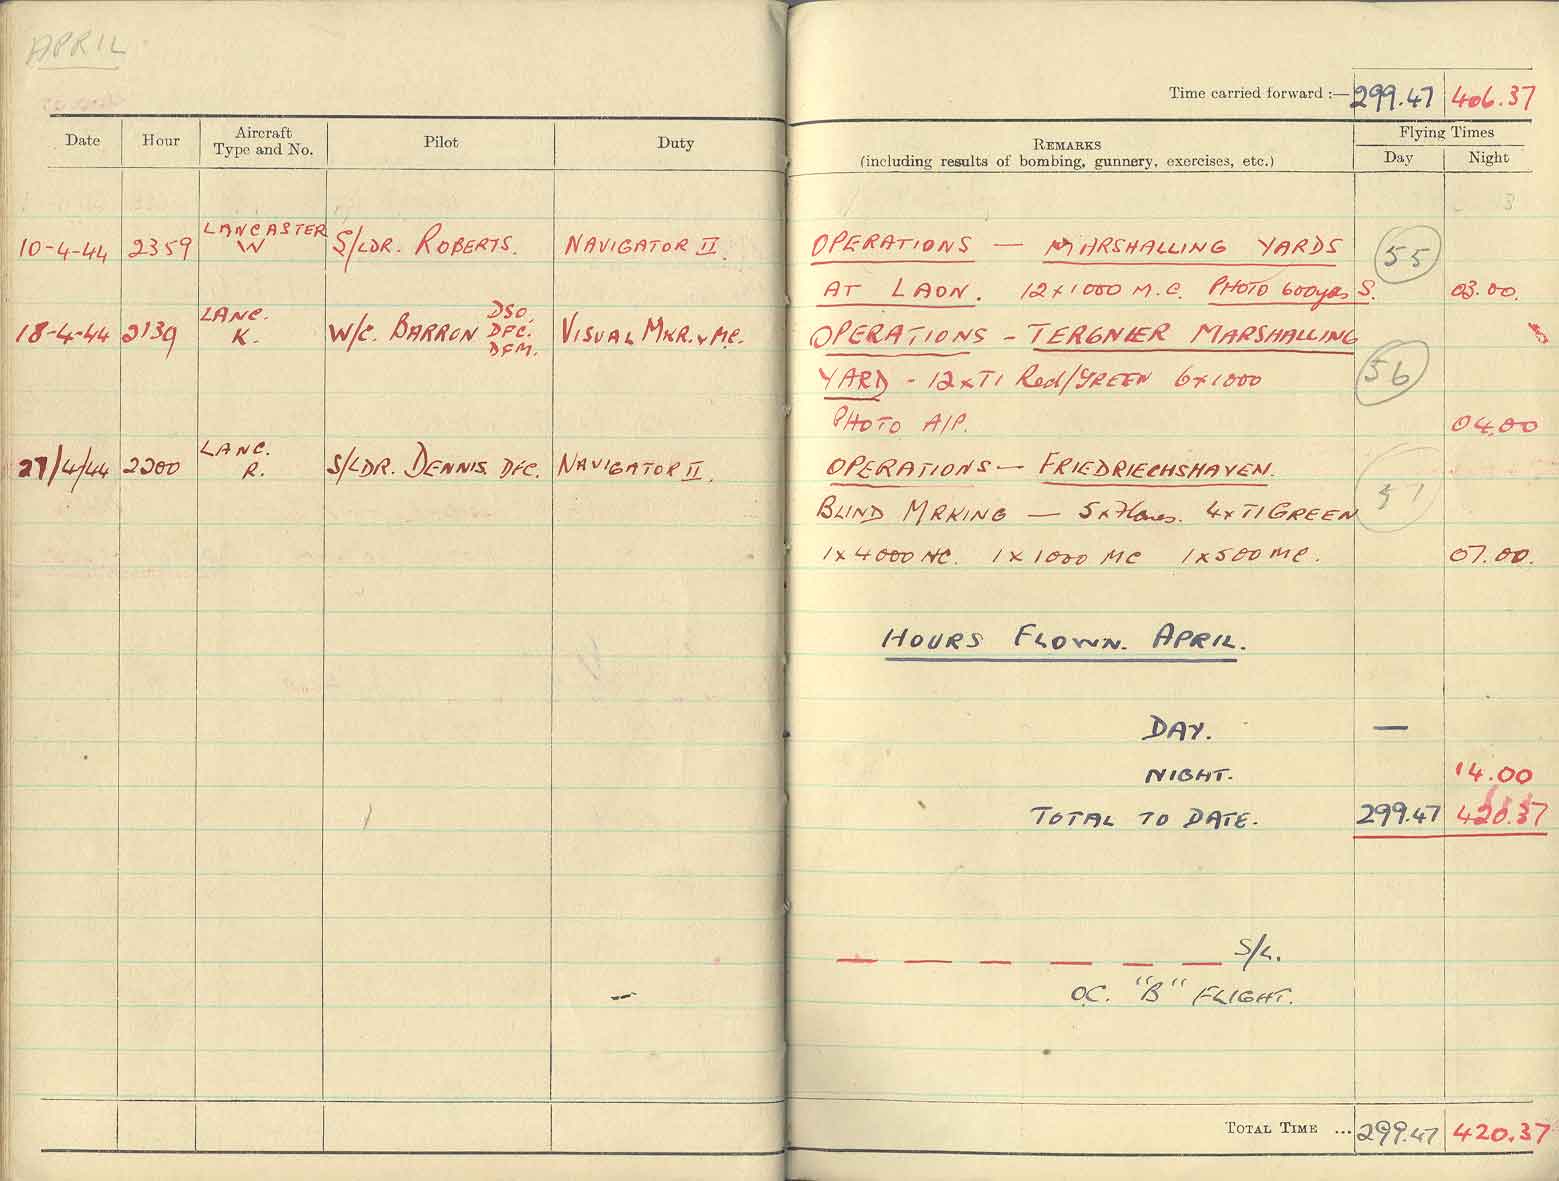 APRIL
Time carried forward :— 299.47 406.37
Date Hour Aircraft Type and No. Pilot Duty REMARKS (including results of bombing, gunnery, exercises, etc.) Flying Times Day Night
10-4-44 2359 LANCASTER W S/LDR. ROBERTS. NAVIGATOR II. OPERATIONS — MARSHALLING YARDS 55
AT LAON. 12x1000 M.C. PHOTO 600yds S. 03.00.
18-4-44 2139 LANC. K. W/C. BARRON DSO. DFC. DFM. VISUAL MKR. & MC. OPERATIONS - TERGNIER MARSHALLING
YARD - 12xTI Red/GREEN 6x1000 56
PHOTO A/P. 04.00
27/4/44 2200 LANC. R. S/LDR. DENNIS DFC. NAVIGATOR II. OPERATIONS — FRIEDRIECHSHAVEN.
BLIND MRKING — 5x Flares. 4xTI GREEN 57
1x4000 HC. 1x1000 MC 1x500 MC. 07.00.
HOURS FLOWN. APRIL.
DAY. —
NIGHT. 14.00
TOTAL TO DATE. 299.47 420.37
S/L.
O.C. "B" FLIGHT.
TOTAL TIME ... 299.47 420.37